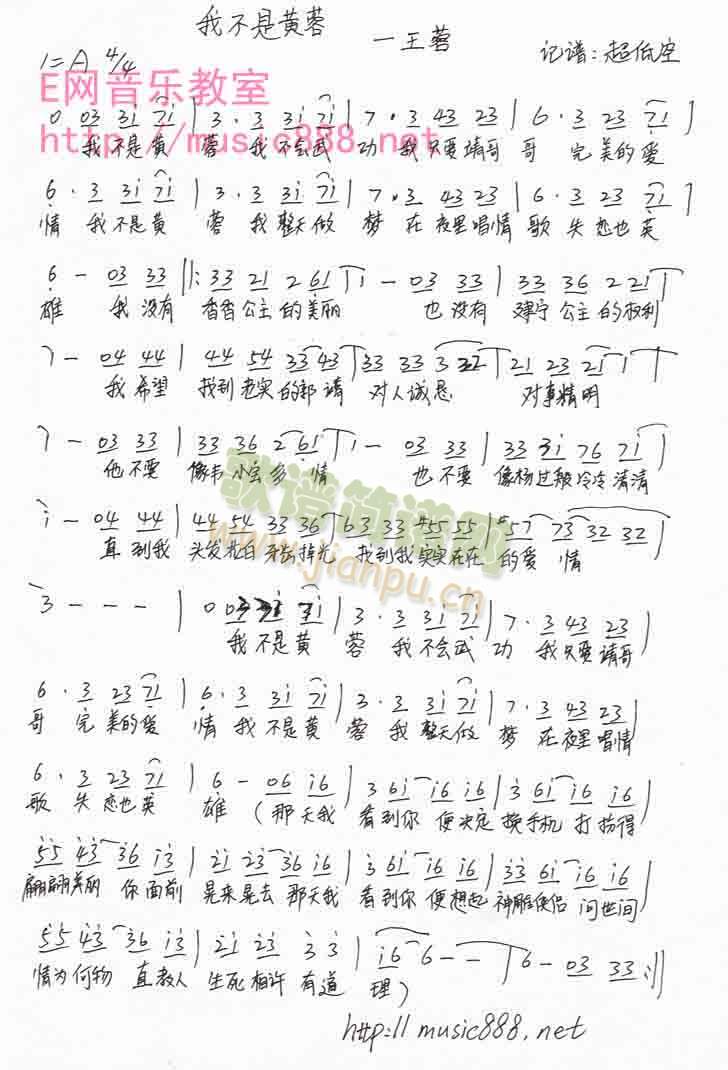 我不是黄蓉
一王蓉
1=A 4/4
记谱:超低空
E网音乐教室
http://music888.net
0 03 3i 7i | 3·3 3i 7i | 7·3 43 23 | 6·3 23 7i |
我不是黄 蓉 我不会武 功 我只要靖哥 哥 完美的爱
6·3 3i 7i | 3·3 3i 7i | 7·3 43 23 | 6·3 23 7i |
情 我不是黄 蓉 我整天做 梦 在夜里唱情 歌 失恋也英
6 - 03 33 ||: 33 21 2 61 | 1 - 03 33 | 33 36 2 21 |
雄 我没有 香香公主的美丽 也没有 建宁公主的权利
1 - 04 44 | 44 54 33 43 | 33 33 3 22 | 21 23 21 1 |
我希望 找到老实的郭靖 对人诚恳 对事精明
1 - 03 33 | 33 36 2 61 | 1 - 03 33 | 33 3i 76 7i |
他不要 像韦小宝多情 也不要 像杨过般冷冷清清
i - 04 44 | 44 54 33 36 | 63 33 #55 55 | #57 73 32 32 |
直到我 头发花白牙齿掉光 找到我实实在在 的爱情
歌谱简谱网
www.jianpu.cn
3 - - - | 0 03 3i 7i | 3·3 3i 7i | 7·3 43 23 |
我不是黄 蓉 我不会武 功 我只要靖哥
6·3 23 7i | 6·3 3i 7i | 3·3 3i 7i | 7·3 43 23 |
哥 完美的爱 情 我不是黄 蓉 我整天做 梦 在夜里唱情
6·3 23 7i | 6 - 06 i6 | 3 6i i6 i6 | 3 6i i6 i6 |
歌 失恋也英 雄 (那天我 看到你 便决定 换手机 打扮得
55 43 36 i3 | 2i 23 36 i6 | 3 6i i6 i6 | 33 6i i6 i6 |
翩翩美丽 你面前 晃来晃去 那天我 看到你 便想起 神雕侠侣 问世间
55 43 36 i3 | 2i 23 3 3 | i6 6 - - | 6 - 03 33 :||
情为何物 直教人 生死相许 有道 理)
http://music888.net